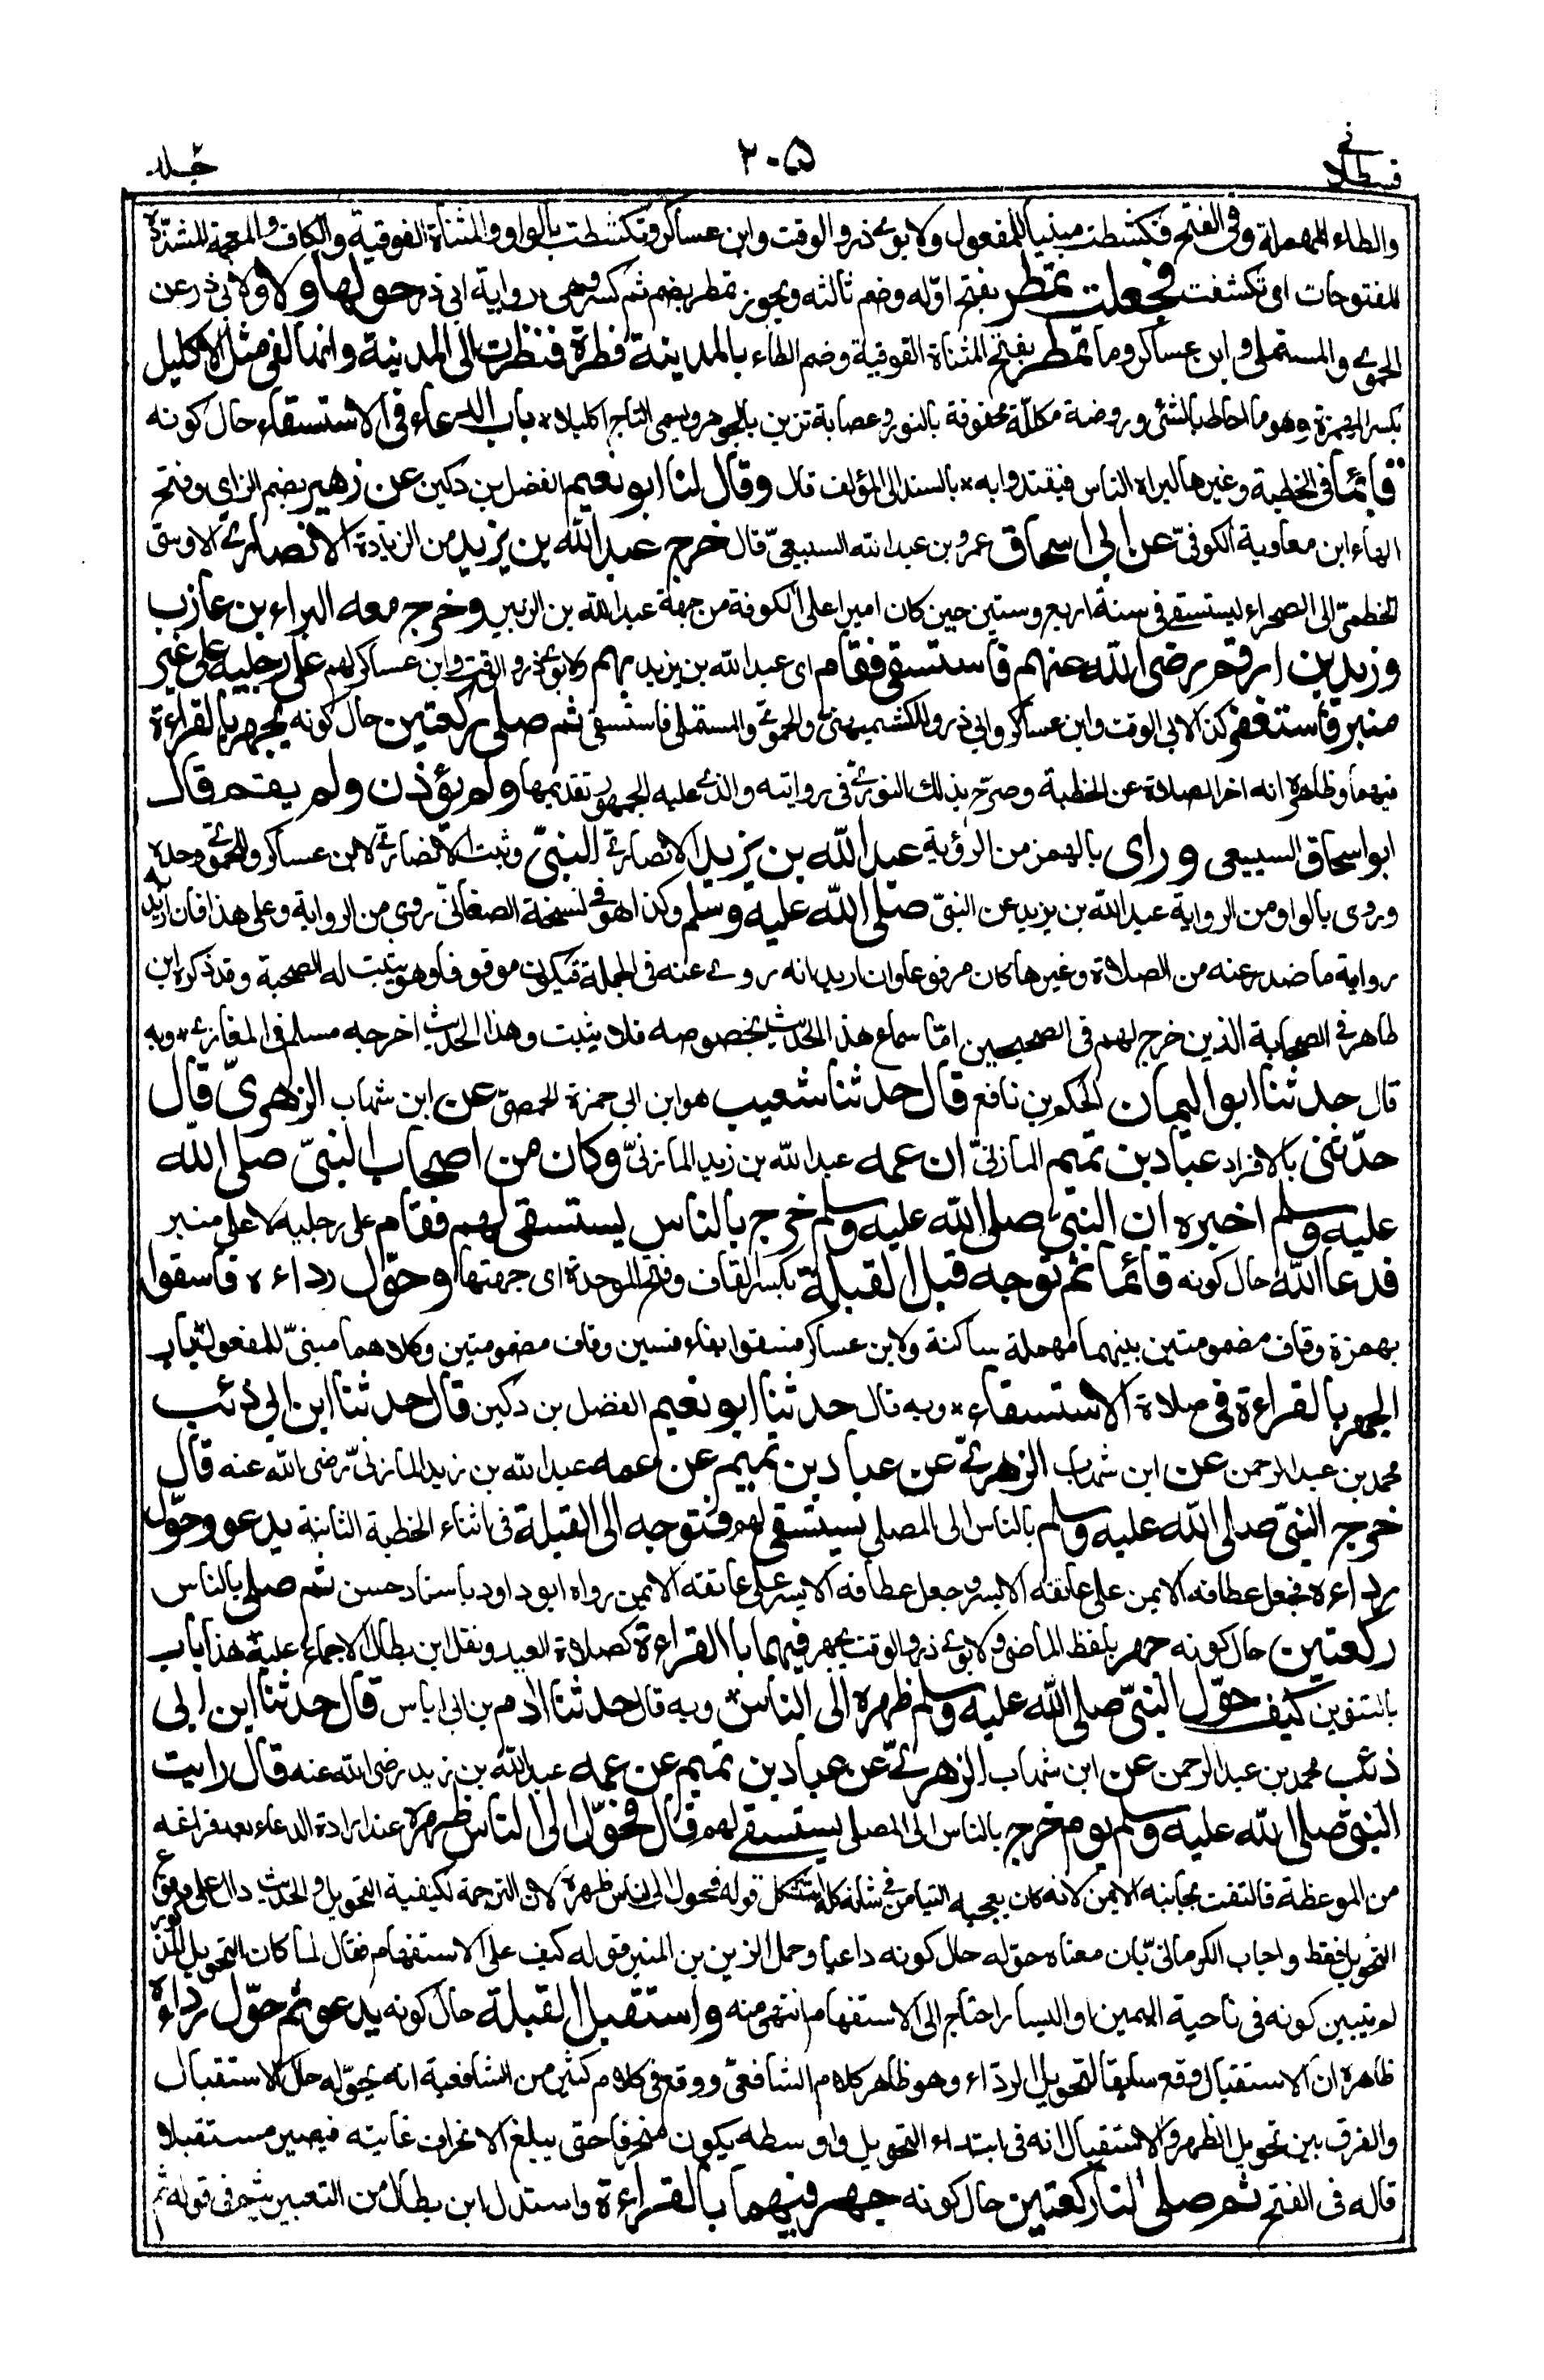 قسطلانى
٢٠٥
جلد ٢
والطاء المهملة وفى الفتح فكشطت مبنيا للمفعول ولابوى ذر والوقت وابن عساكر وتكشطت بالواو والمثناة الفوقية والكاف والمعجمة المشددة
المفتوحات اى تكشفت فجعلت تمطر بفتح اوّله وضم ثالثه ويجوز تمطر بضم ثم كسر وهى رواية ابى ذر حولها ولا ولابى ذر عن
الحموى والمستملى وابن عساكر وما تمطر بفتح المثناة الفوقية وضم الطاء بالمدينة قطرة فنظرت الى المدينة وانها لفى مثل الاكليل
بكسر الهمزة وهو ما احاط بالشئ وروضة مكللة محفوفة بالنور وعصابة تزين بالجوهر ويسمى التاج اكليلا * باب الدعاء فى الاستسقاء حال كونه
قائما فى الخطبة وغيرها ليراه الناس فيقتدوا به * بالسند الى المؤلف قال وقال لنا ابو نعيم الفضل بن دكين عن زهير بضم الزاى وفتح
الهاء ابن معاوية الكوفىّ عن ابى اسحاق عمرو بن عبد الله السبيعىّ قال خرج عبد الله بن يزيد من الزيادة الانصارى الاوسى
الخطمىّ الى الصحراء ليستسقى فى سنة اربع وستين حين كان اميرا على الكوفة من جهة عبد الله بن الزبير وخرج معه البراء بن عازب
وزيد بن ارقم رضى الله عنهم فاستسقى فقام اى عبد الله بن يزيد بهم ولابوى ذر والوقت وابن عساكر لهم على رجليه على غير
منبر فاستغفر كذا لابى الوقت وابن عساكر وابى ذر وللكشميهنىّ والحموىّ والمستملى فاستسقى ثم صلى ركعتين حال كونه يجهر بالقراءة
فيهما وظاهره انه اخر الصلاة عن الخطبة وصرّح بذلك الثورىّ فى روايته والذى عليه الجمهور تقديمها ولم يؤذن ولم يقم قال
ابو اسحاق السبيعى وراى بالهمز من الرؤية عبد الله بن يزيد الانصارى النبىّ وثبت الانصارىّ لابن عساكر والحموىّ وحده
وروى بالواو من الرواية عبد الله بن يزيد عن النبىّ صلى الله عليه وسلم وكذا هو فى نسخة الصغانىّ روى من الرواية وعلى هذا فان اريد به
رواية ما صدر عنه من الصلاة وغيرها كان مرفوعا وان اريد انه روى عنه فى الجملة فيكون موقوفا وهو يثبت له الصحبة وقد ذكره ابن
طاهر فى الصحابة الذين خرج لهم فى الصحيحين امّا سماع هذا الحديث بخصوصه فلا يثبت وهذا الحديث اخرجه مسلم فى المغازى * وبه
قال حدثنا ابو اليمان الحكم بن نافع قال حدثنا شعيب هو ابن ابى حمزة الحمصىّ عن ابن شهاب الزهرىّ قال
حدّثنى بالافراد عباد بن تميم المازنىّ ان عمه عبد الله بن زيد المازنىّ وكان من اصحاب النبىّ صلى الله
عليه وسلم اخبره ان النبىّ صلى الله عليه وسلم خرج بالناس يستسقى لهم فقام على رجليه لا على منبر
فدعا الله حال كونه قائما ثم توجه قبل القبلة بكسر القاف وفتح الموحدة اى جهتها وحوّل رداءه فاسقوا
بهمزة وقاف مضمومتين بينهما مهملة ساكنة ولابن عساكر فسقوا بفاء فسين وقاف مضمومتين وكلاهما مبنىّ للمفعول * باب
الجهر بالقراءة فى صلاة الاستسقاء * وبه قال حدثنا ابو نعيم الفضل بن دكين قال حدثنا ابن ابى ذئب
محمد بن عبد الرحمن عن ابن شهاب الزهرىّ عن عباد بن تميم عن عمه عبد الله بن زيد المازنىّ رضى الله عنه قال
خرج النبىّ صلى الله عليه وسلم بالناس الى المصلى يستسقى لهم فتوجه الى القبلة فى اثناء الخطبة الثانية يدعو وحوّل
رداءه فجعل عطافه الايمن على عاتقه الايسر وجعل عطافه الايسر على عاتقه الايمن رواه ابو داود باسناد حسن ثم صلى بالناس
ركعتين حال كونه جهر بلفظ الماضى ولابوى ذر والوقت يجهر فيهما بالقراءة كصلاة العيد ونقل ابن بطال الاجماع عليه * هذا باب
بالتنوين كيف حوّل النبىّ صلى الله عليه وسلم ظهره الى الناس * وبه قال حدثنا ادم بن ابى اياس قال حدثنا ابن ابى
ذئب محمد بن عبد الرحمن عن ابن شهاب الزهرىّ عن عباد بن تميم عن عمه عبد الله بن زيد رضى الله عنه قال رايت
النبىّ صلى الله عليه وسلم يوم خرج بالناس الى المصلى يستسقى لهم قال فحوّل الى الناس ظهره عند ارادة الدعاء بعد فراغه
من الموعظة فالتفت بجانبه الايمن لانه كان يعجبه التيامن فى شانه كله استشكل قوله فحول الى الناس ظهره لان الترجمة لكيفية التحويل والحديث دال على وقوع
التحويل فقط واجاب الكرمانىّ بان معناه حوّله حال كونه داعيا وحمل الزين بن المنير قوله كيف على الاستفهام فقال لما كان التحويل المذكور
لم يتبين كونه فى ناحية اليمين او اليسار احتاج الى الاستفهام انتهى منه واستقبل القبلة حال كونه يدعو ثم حوّل رداءه
ظاهره ان الاستقبال وقع سابقا لتحويل الرداء وهو ظاهر كلام الشافعىّ ووقع فى كلام كثير من الشافعية انه يحوّله حال الاستقبال
والفرق بين تحويل الظهر والاستقبال انه فى ابتداء التحويل واوسطه يكون منحرفا حتى يبلغ الانحراف غايته فيصير مستقبلا
قاله فى الفتح ثم صلى لنا ركعتين حال كونه جهر فيهما بالقراءة واستدل ابن بطال من التعبير بثم فى قوله ثم